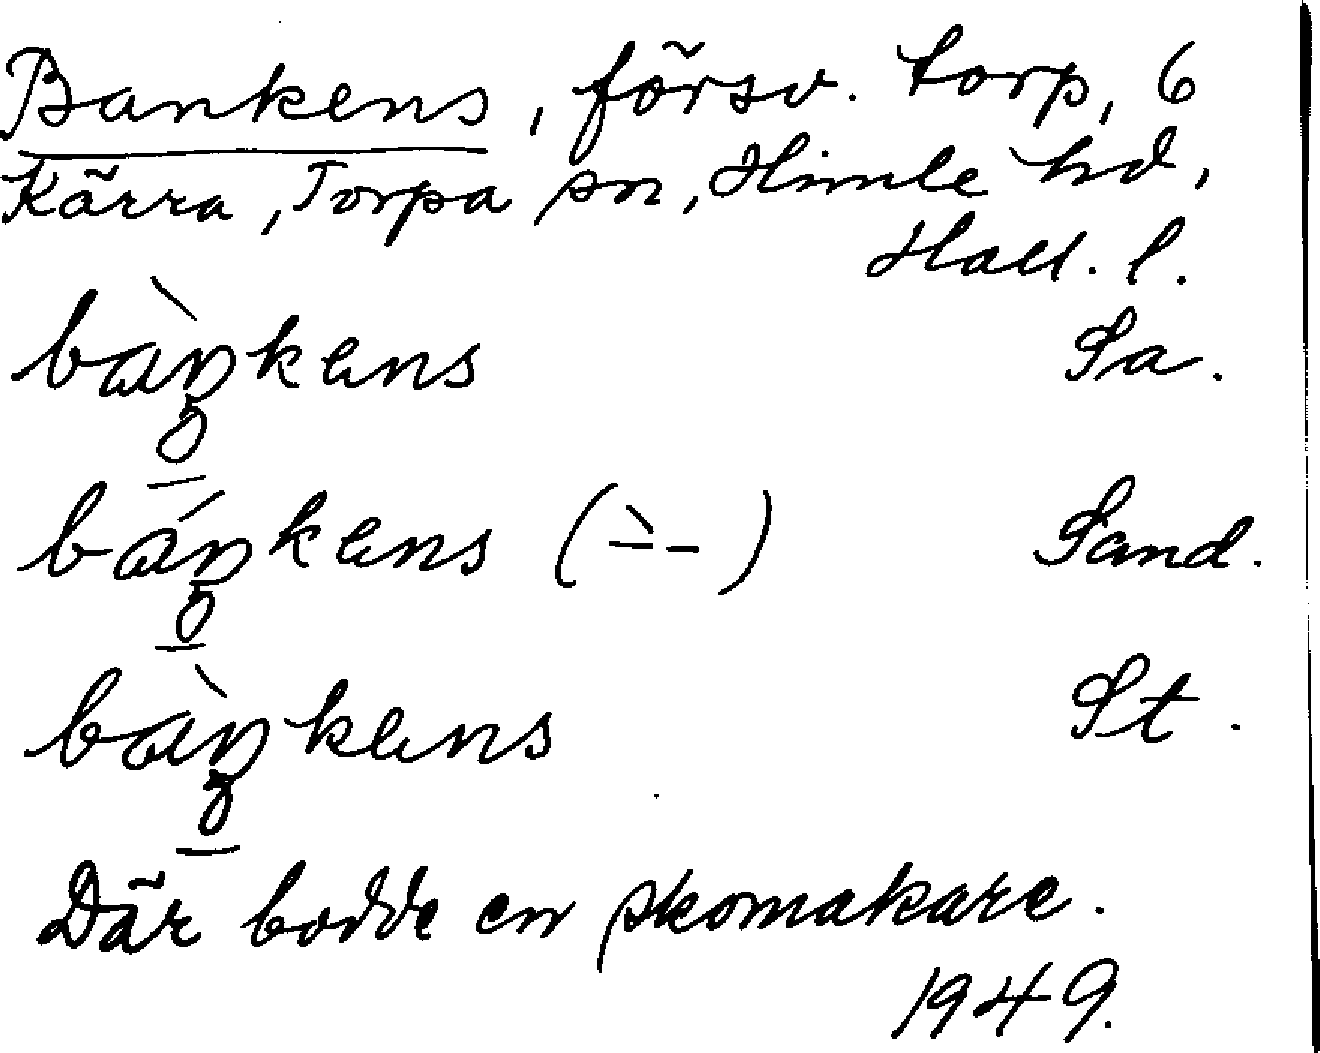 Bankens, försv. torp, 6
Kärra, Torpa sn, Himle hd,
Hall. l.
bàŋkens Sa.
báŋkens (-̀ -) Sand.
bàŋkens St.
Där bodde en skomakare.
1949.